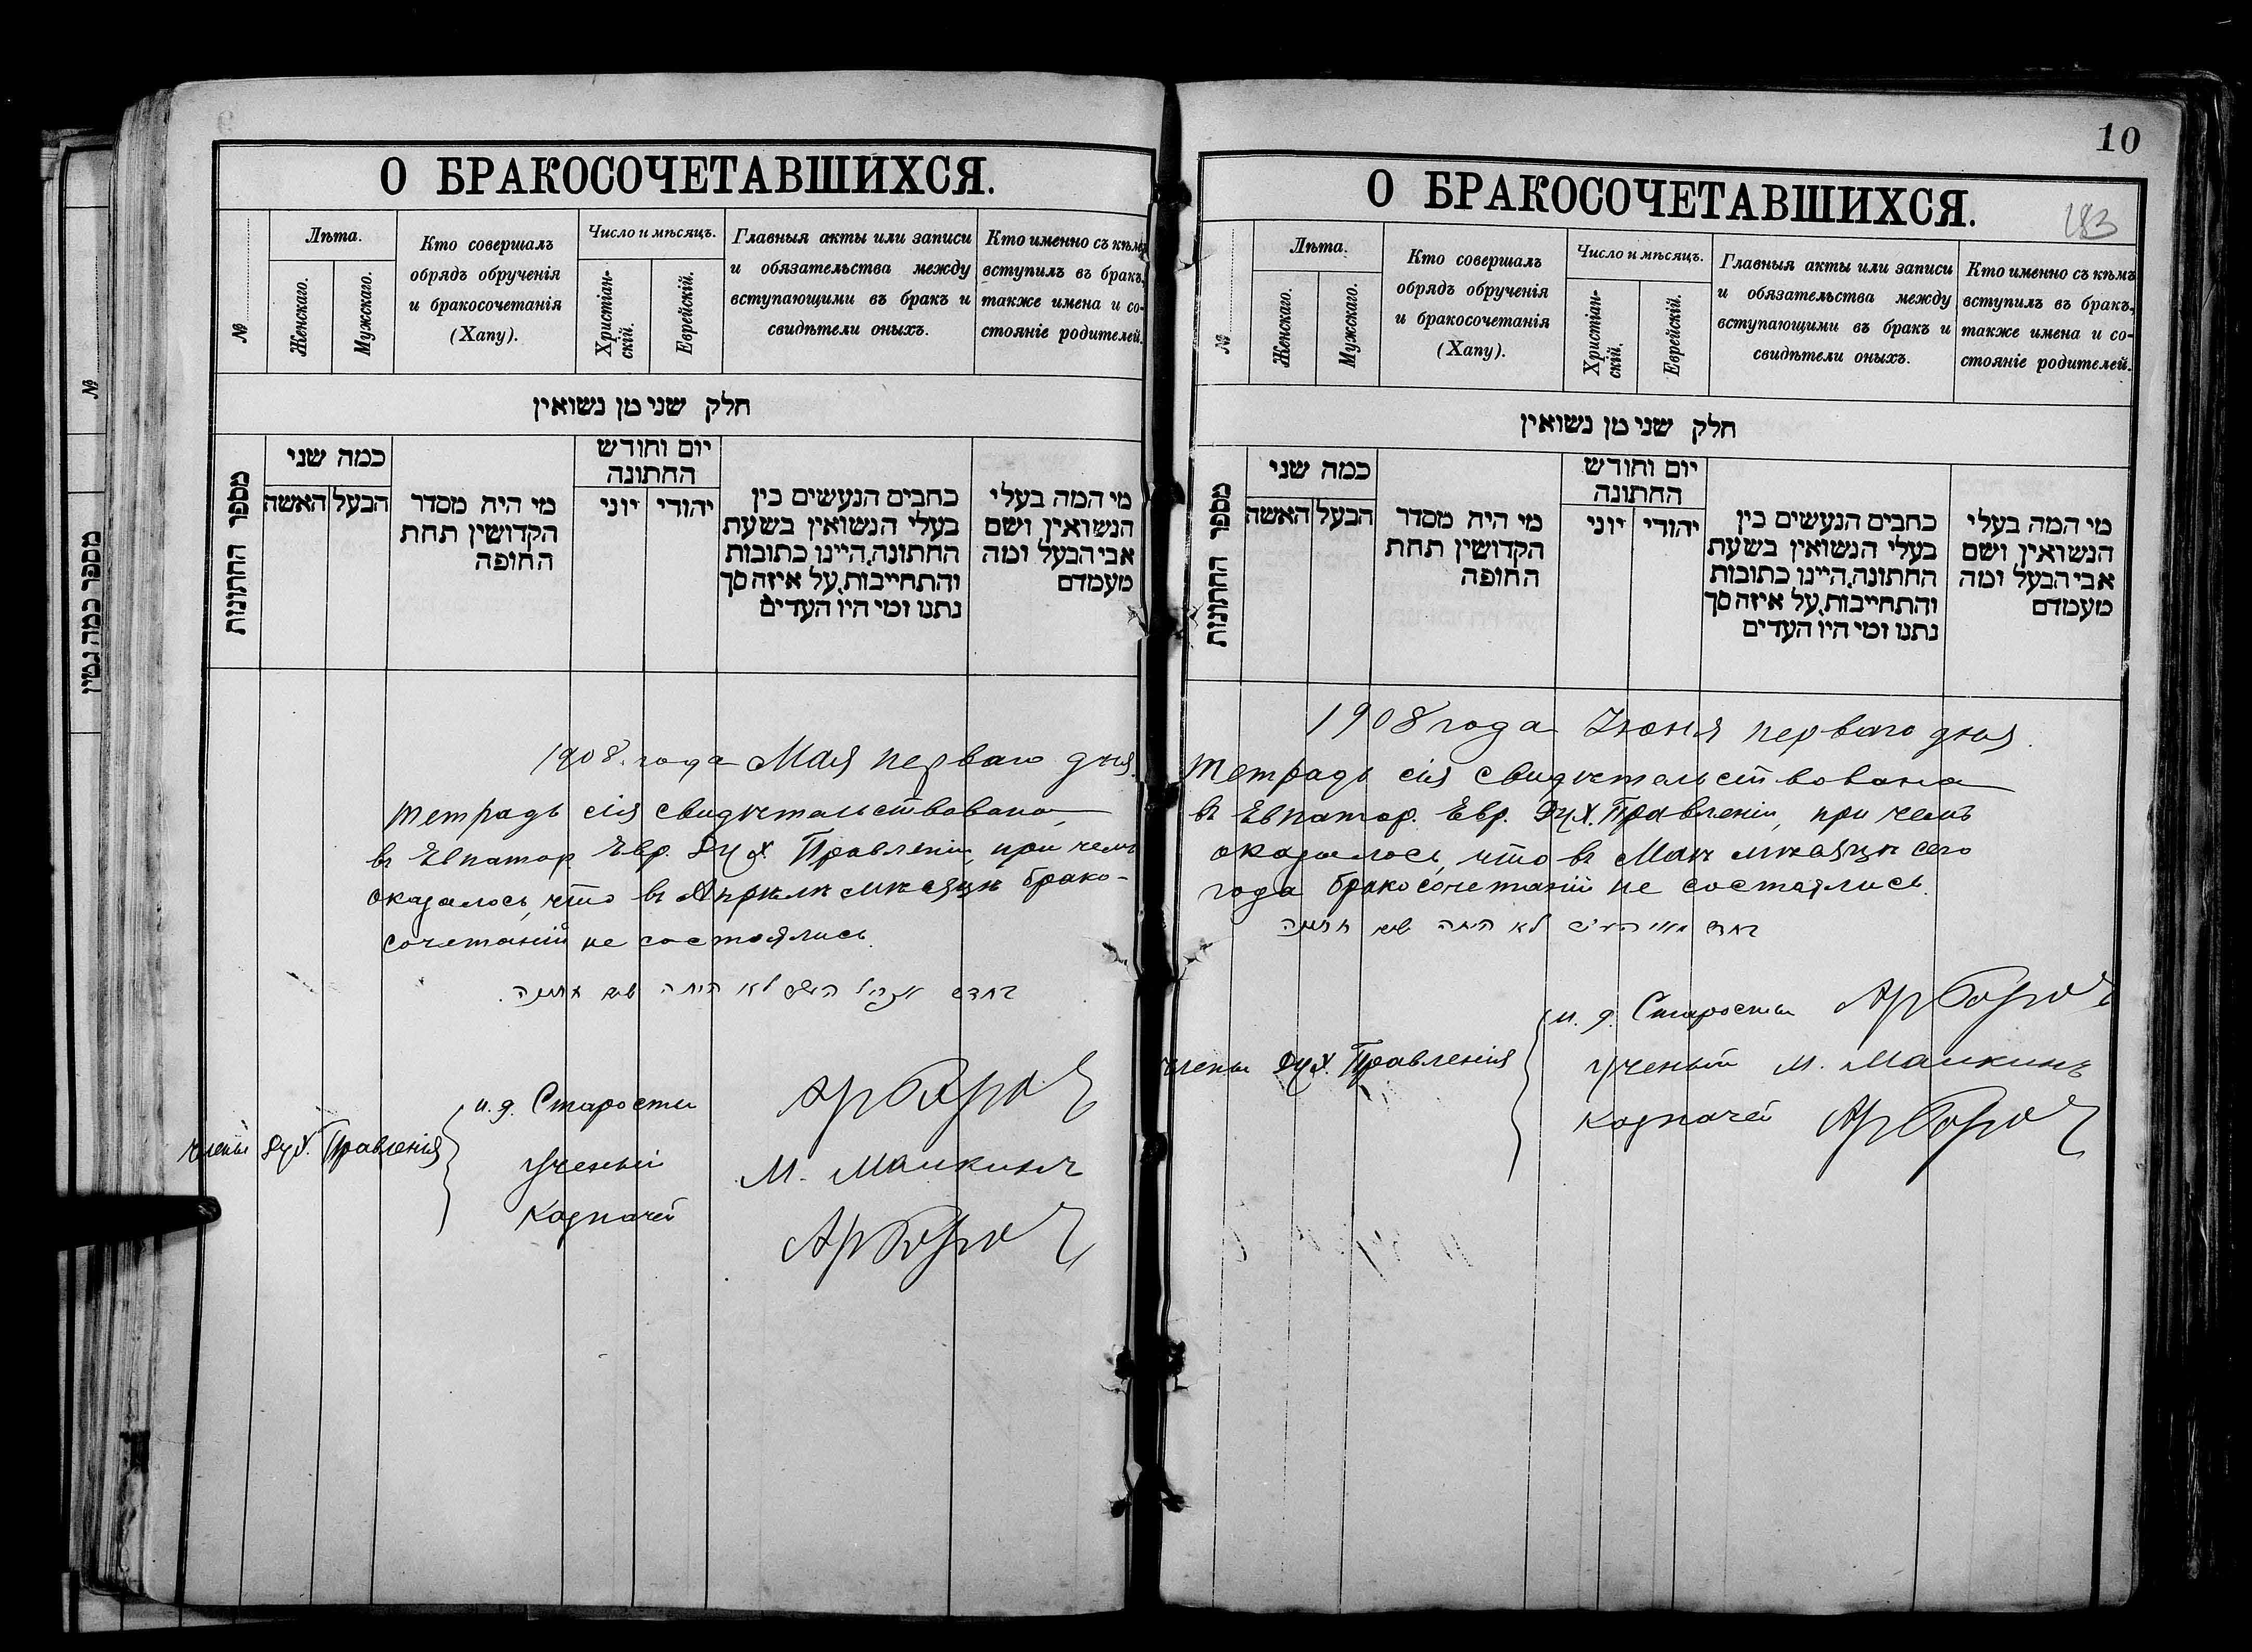 О БРАКОСОЧЕТАВШИХСЯ.
№
Лѣта.
Женскаго.
Мужскаго.
Кто совершалъ
обрядъ обрученія
и бракосочетанія
(Хапу).
Число и мѣсяцъ.
Христіан-
скій.
Еврейскій.
Главныя акты или записи
и обязательства между
вступающими въ бракъ и
свидѣтели оныхъ.
Кто именно съ кѣмъ
вступилъ въ бракъ,
также имена и со-
стояніе родителей.
חלק שני מן נשואין
מספר החתונות
כמה שני
האשה
הבעל
מי היה מסדר
הקדושין תחת
החופה
יום וחודש
החתונה
יוני
יהודי
כתבים הנעשים בין
בעלי הנשואין בשעת
החתונה, היינו כתובות
והתחייבות, על איזה סך
נתנו ומי היו העדים
מי המה בעלי
הנשואין ושם
אבי הבעל ומה
מעמדם
1908. года Мая перваго дня.
тетрадь сія свидѣтельствована
въ Евпатор. Евр. Дух. Правленіи, при чемъ
оказалось, что въ Апрѣлѣ мѣсяцѣ брако-
сочетаній не состоялись.
לא היתה שום חתונה
Члены Дух. Правленія
и. д. Старосты
Ученый М. Маикинъ
Казначей
10
183
О БРАКОСОЧЕТАВШИХСЯ.
№
Лѣта.
Женскаго.
Мужскаго.
Кто совершалъ
обрядъ обрученія
и бракосочетанія
(Хапу).
Число и мѣсяцъ.
Христіан-
скій.
Еврейскій.
Главныя акты или записи
и обязательства между
вступающими въ бракъ и
свидѣтели оныхъ.
Кто именно съ кѣмъ
вступилъ въ бракъ,
также имена и со-
стояніе родителей.
חלק שני מן נשואין
מספר החתונות
כמה שני
האשה
הבעל
מי היה מסדר
הקדושין תחת
החופה
יום וחודש
החתונה
יוני
יהודי
כתבים הנעשים בין
בעלי הנשואין בשעת
החתונה, היינו כתובות
והתחייבות, על איזה סך
נתנו ומי היו העדים
מי המה בעלי
הנשואין ושם
אבי הבעל ומה
מעמדם
1908 года Іюня перваго дня.
Тетрадь сія свидѣтельствована
въ Евпатор. Евр. Дух. Правленіи, при чемъ
оказалось, что въ Маѣ мѣсяцѣ сего
года бракосочетаній не состоялись.
לא היתה שום חתונה
Члены Дух. Правленія
и. д. Старосты
Ученый М. Маикинъ
Казначей
№
מספר כמה גטין